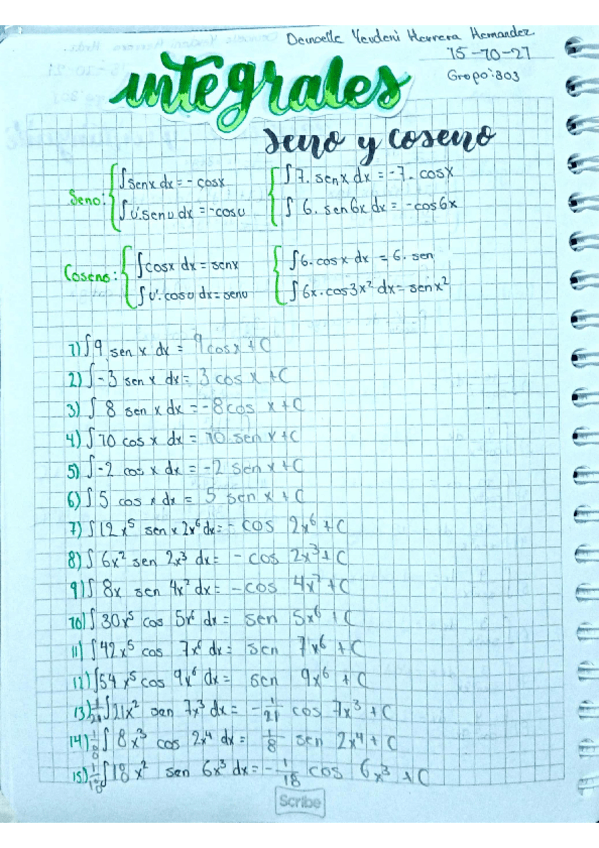 Herrera Hernandez
15-10-27
Grupo:303
integrales
seno y coseno
Seno: ∫senx dx = - cosx
∫u'.senu dx = -cosu
∫7. senx dx = -7. cosx
∫ 6. sen6x dx = -cos6x
Coseno: ∫cosx dx = senx
∫u'. cosu dx = senu
∫6. cosx dx = 6. sen
∫6x. cos3x² dx = senx²
1) ∫9 sen x dx = 9 cosx + C
2) ∫-3 sen x dx = 3 cos x + C
3) ∫ 8 sen x dx = -8 cos x + C
4) ∫10 cos x dx = 10 sen x + C
5) ∫-2 cos x dx = -2 sen x + C
6) ∫5 cos x dx = 5 sen x + C
7) ∫12x⁵ sen x 2x⁶ dx = - cos 2x⁶ + C
8) ∫ 6x² sen 2x³ dx = - cos 2x³ + C
9) ∫ 8x sen 4x² dx = - cos 4x² + C
10) ∫30x⁵ cos 5x⁶ dx = sen 5x⁶ + C
11) ∫42x⁵ cos 7x⁶ dx = sen 7x⁶ + C
12) ∫54 x⁵ cos 9x⁶ dx = sen 9x⁶ + C
13) 1/21 ∫21x² sen 7x³ dx = - 1/21 cos 7x³ + C
14) 1/8 ∫ 8x³ cos 2x⁴ dx = 1/8 sen 2x⁴ + C
15) 1/18 ∫18x² sen 6x³ dx = - 1/18 cos 6x³ + C
Scribe